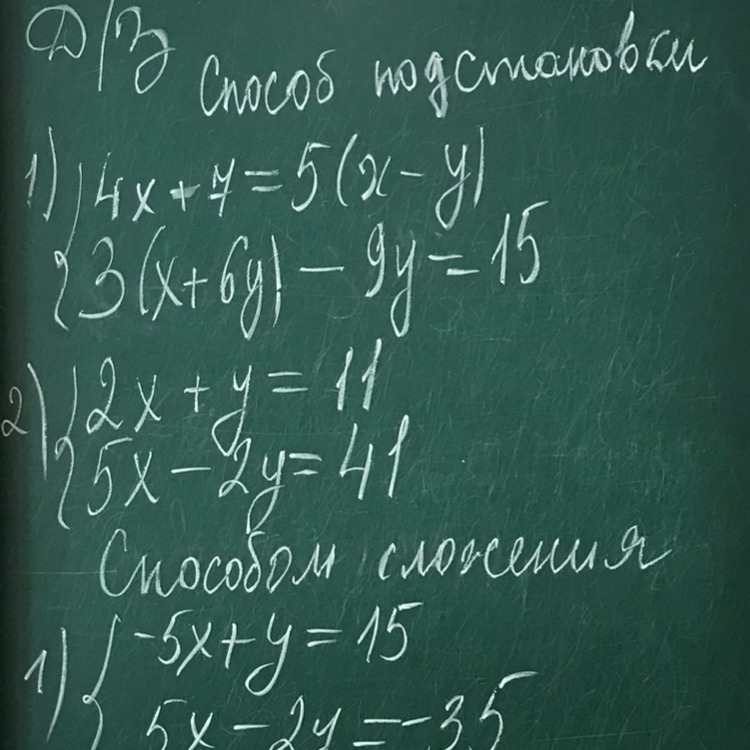 Д/З
Способ подстановки
1) { 4x + 7 = 5(x - y)
3(x + 6y) - 9y = 15
2) { 2x + y = 11
5x - 2y = 41
Способом сложения
1) { -5x + y = 15
5x - 2y = -35